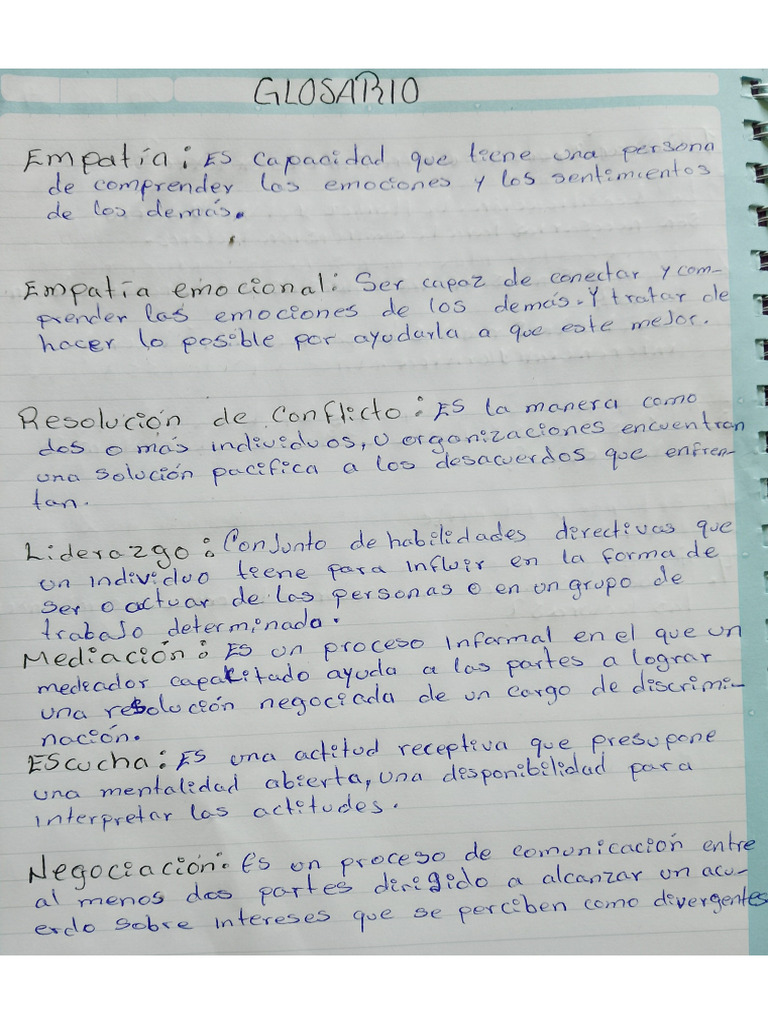 GLOSARIO
Empatía: Es capacidad que tiene una persona
de comprender las emociones y los sentimientos
de los demás.
Empatía emocional: Ser capaz de conectar y com-
prender las emociones de los demás. Y tratar de
hacer lo posible por ayudarla a que este mejor.
Resolución de conflicto: Es la manera como
dos o más individuos, u organizaciones encuentran
una solución pacifica a los desacuerdos que enfren-
tan.
Liderazgo: Conjunto de habilidades directivas que
un individuo tiene para influir en la forma de
ser o actuar de las personas o en un grupo de
trabajo determinado.
Mediación: Es un proceso informal en el que un
mediador capacitado ayuda a las partes a lograr
una resolución negociada de un cargo de discrimi-
nación.
Escucha: Es una actitud receptiva que presupone
una mentalidad abierta, una disponibilidad para
interpretar las actitudes.
Negociación: Es un proceso de comunicación entre
al menos dos partes dirigido a alcanzar un acu-
erdo sobre intereses que se perciben como divergentes